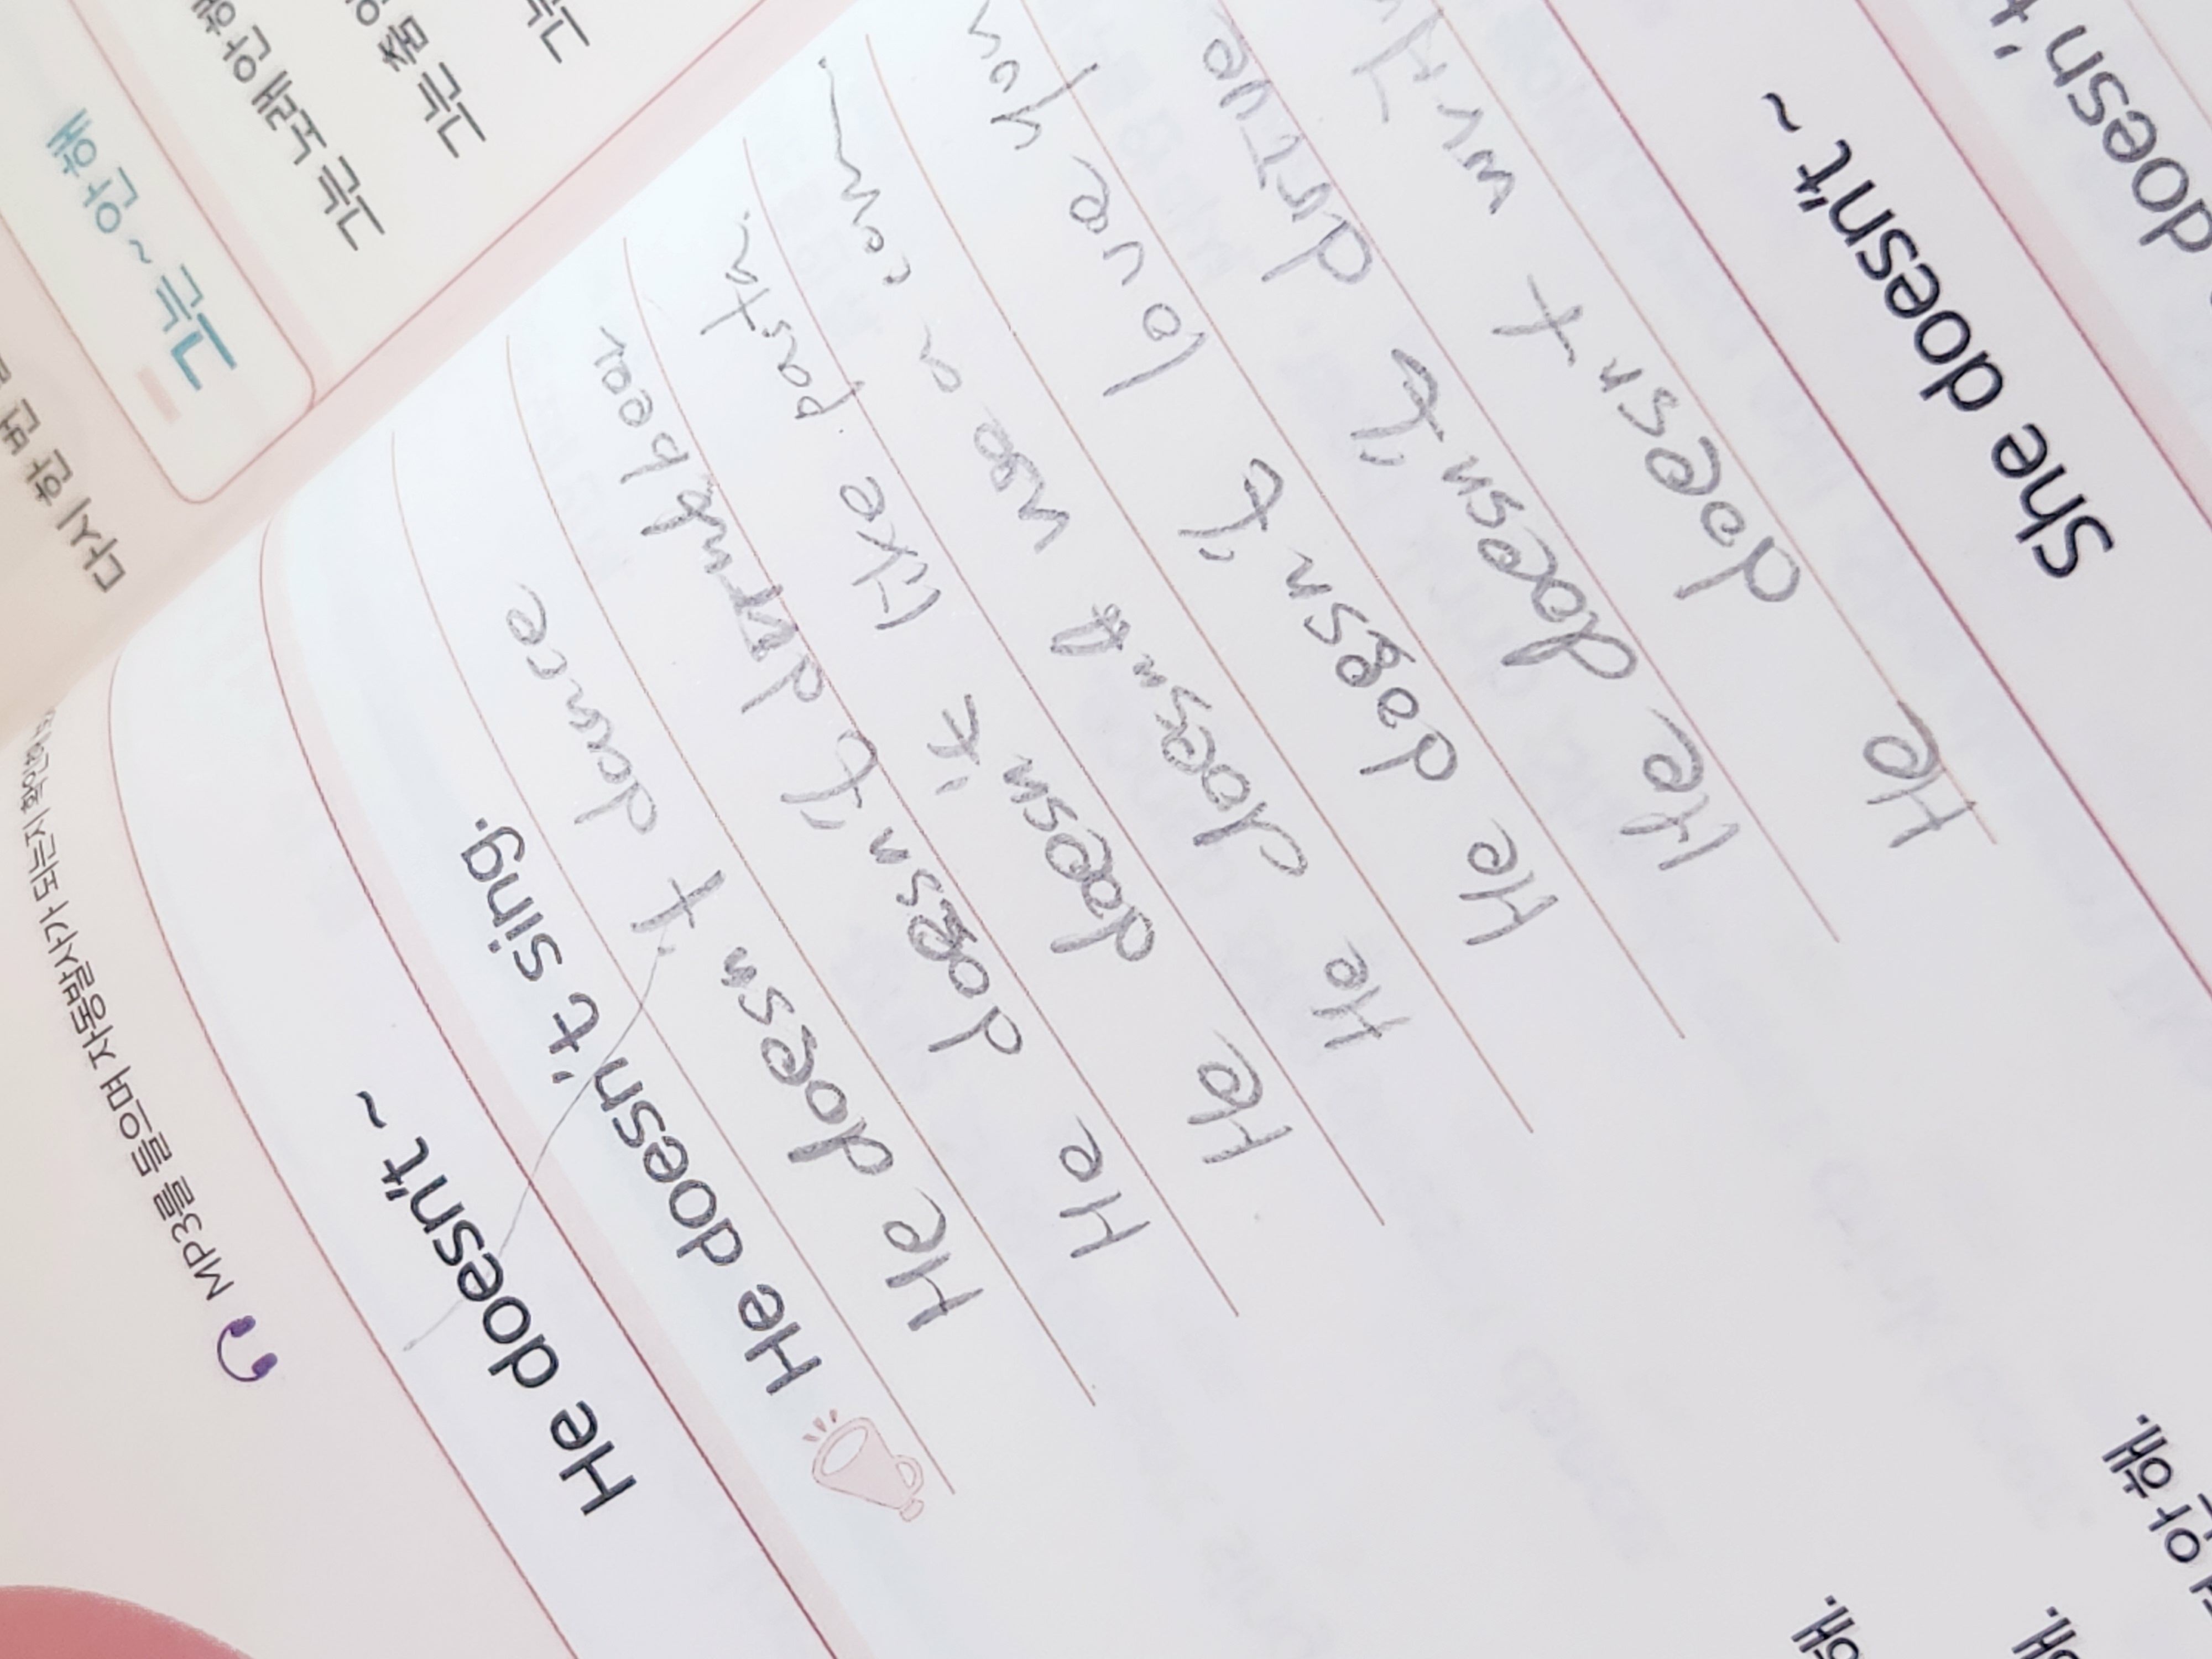 MP3를 들으며 자동발사가 되는지
He doesn't ~
He doesn't sing.
He doesn't dance
He doesn't drink beer
He doesn't like pasta.
He doesn't use a
He doesn't love you
He doesn't drive
He doesn't
She doesn't ~
doesn't
다시 한 번
그는 ~ 안 해
그는 노래 안
그는 춤
그는
안 해.
해.
해.